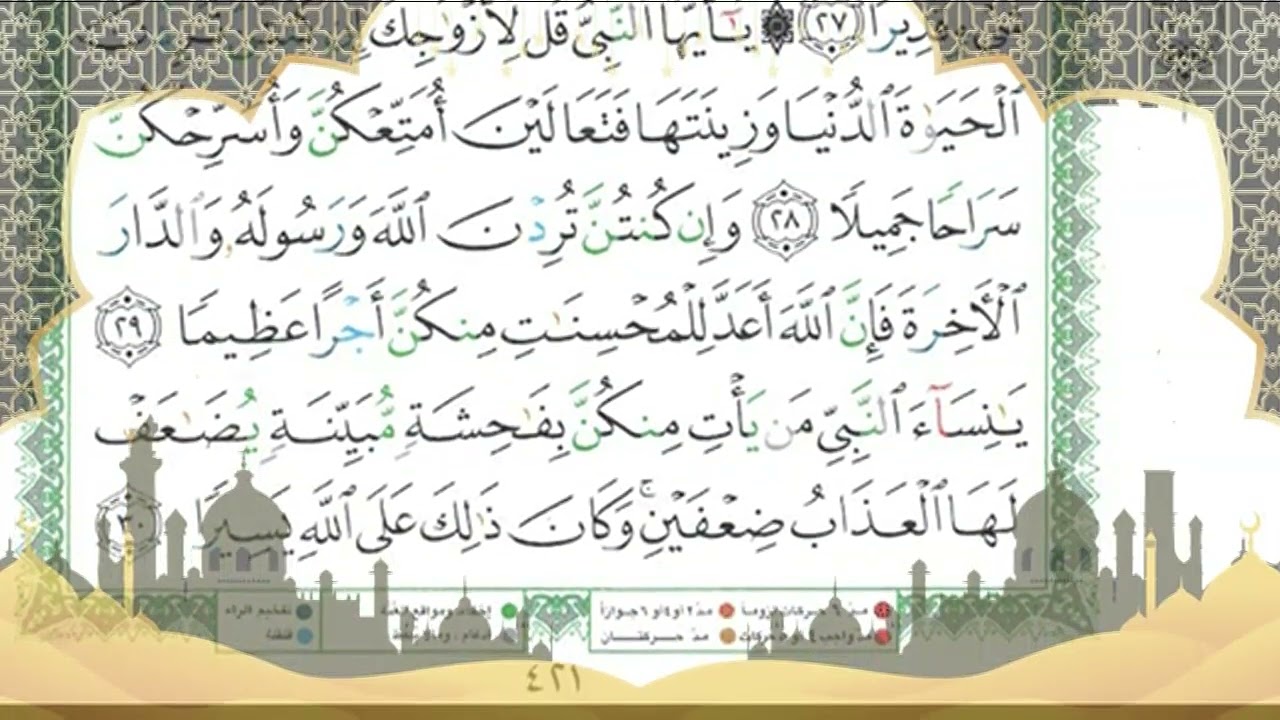 قَدِيرًا ٢٧ يَـٰٓأَيُّهَا ٱلنَّبِىُّ قُل لِّأَزْوَٰجِكَ إِن كُنتُنَّ تُرِدْنَ
ٱلْحَيَوٰةَ ٱلدُّنْيَا وَزِينَتَهَا فَتَعَالَيْنَ أُمَتِّعْكُنَّ وَأُسَرِّحْكُنَّ
سَرَاحًا جَمِيلًا ٢٨ وَإِن كُنتُنَّ تُرِدْنَ ٱللَّهَ وَرَسُولَهُۥ وَٱلدَّارَ
ٱلْأَخِرَةَ فَإِنَّ ٱللَّهَ أَعَدَّ لِلْمُحْسِنَـٰتِ مِنكُنَّ أَجْرًا عَظِيمًا ٢٩
يَـٰنِسَآءَ ٱلنَّبِىِّ مَن يَأْتِ مِنكُنَّ بِفَـٰحِشَةٍ مُّبَيِّنَةٍ يُضَـٰعَفْ
لَهَا ٱلْعَذَابُ ضِعْفَيْنِ ۚ وَكَانَ ذَٰلِكَ عَلَى ٱللَّهِ يَسِيرًا ٣٠
مدّ ٦ حركات لزوماً مدّ ٢ أو ٤ أو ٦ جوازاً إخفاء ومواقع الغنّة تفخيم الراء
مدّ واجب ٤ أو ٥ حركات مدّ حركتان إدغام ، وما لا يلفظ قلقلة
٤٢١